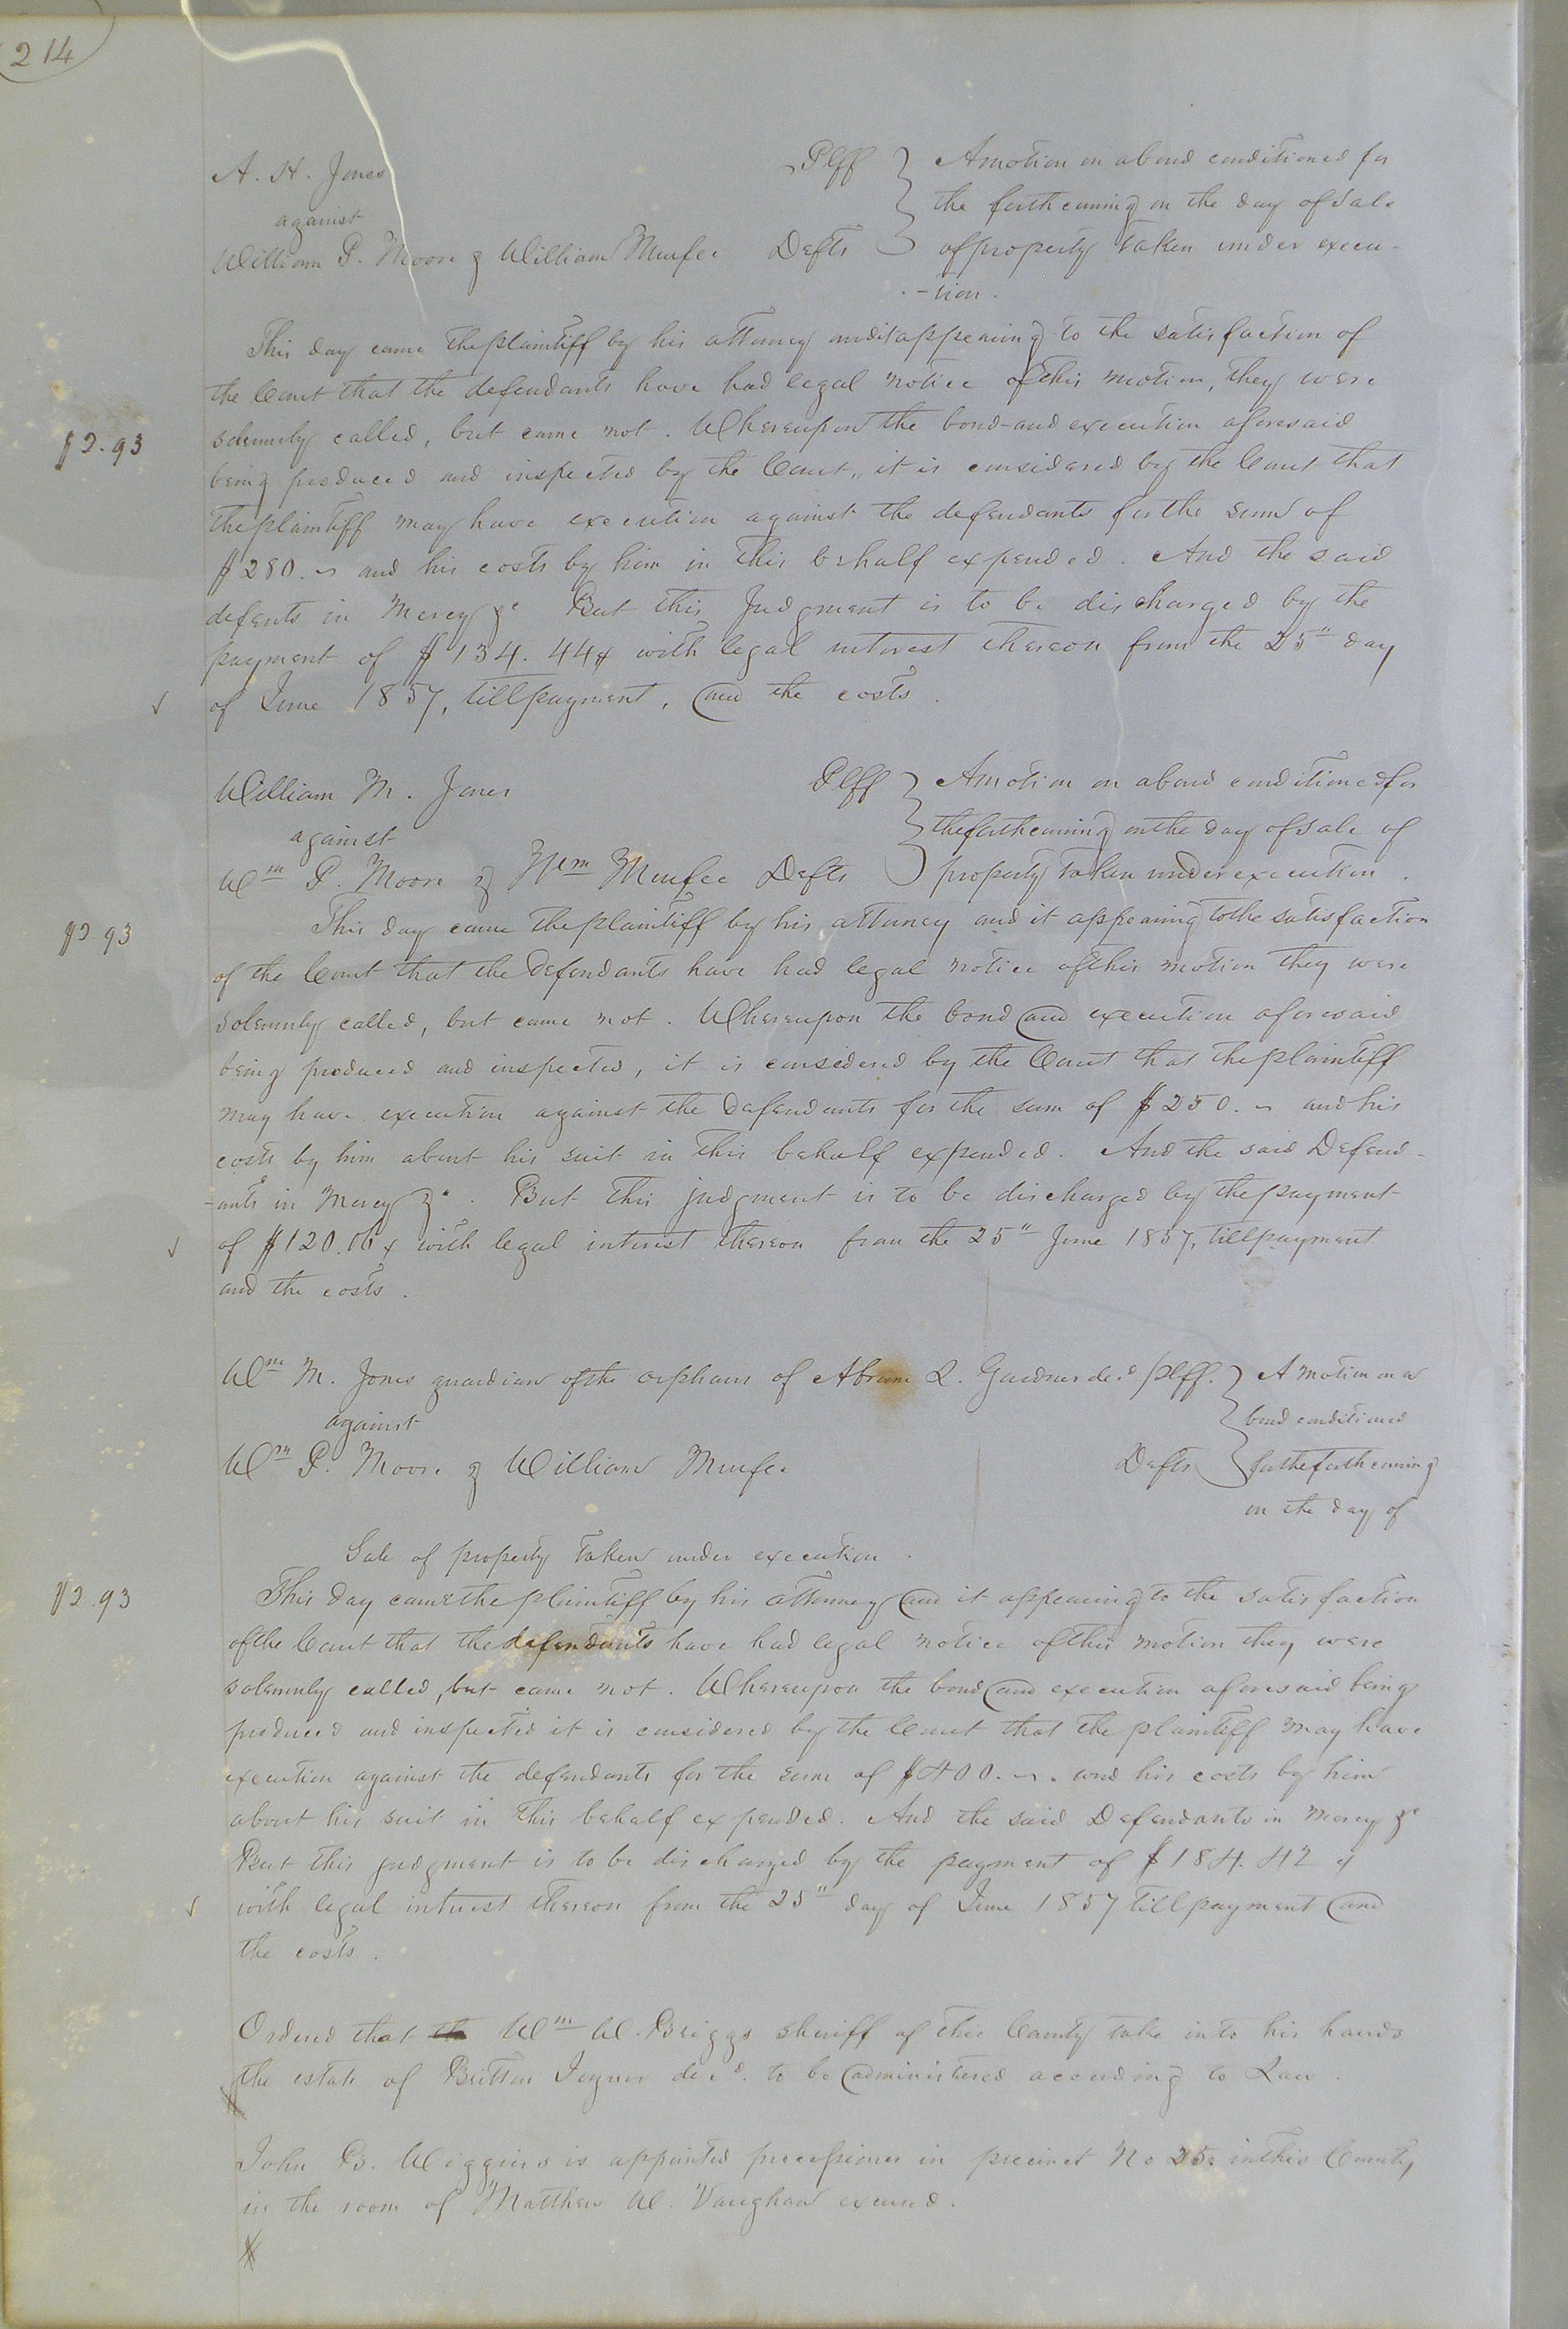 214
A. H. Jones Plff A motion on a bond conditioned for
against the forthcoming on the day of sale
William P. Moore & William Murfee Defts of property taken under execu-
-tion.
This day came the plaintiff by his attorney and it appearing to the satisfaction of
the Court that the defendants have had legal notice of this motion, they were
$2.93 solemnly called, but came not. Whereupon the bond and execution aforesaid
being produced and inspected by the Court, it is considered by the Court that
the plaintiff may have execution against the defendants for the sum of
$280. ~ and his costs by him in this behalf expended. And the said
defents in Mercy &c But this Judgment is to be discharged by the
payment of $134.44 ¢ with legal interest thereon from the 25" day
✓ of June 1857, till payment, and the costs.
William M. Jones Plff A motion on a bond conditioned for
against the forthcoming on the day of sale of
Wm P. Moore & Wm Murfee Defts property taken under execution.
$2.93 This day came the plaintiff by his attorney and it appearing to the satisfaction
of the Court that the Defendants have had legal notice of this motion they were
solemnly called, but came not. Whereupon the bond and execution aforesaid
being produced and inspected, it is considered by the Court that the plaintiff
may have execution against the Defendants for the sum of $250. ~ and his
costs by him about his suit in this behalf expended. And the said Defend-
-ants in Mercy &c. But this judgment is to be discharged by the payment
✓ of $120.06 ¢ with legal interest thereon from the 25" June 1857, till payment
and the costs.
Wm M. Jones guardian of the orphans of Abram L. Gardner decd plff. A motion on a
against bond conditioned
Wm P. Moore & William Murfee Defts for the forthcoming
on the day of
Sale of property taken under execution.
$2.93 This day came the plaintiff by his attorney and it appearing to the satisfaction
of the Court that the defendants have had legal notice of this motion they were
solemnly called, but came not. Whereupon the bond and execution aforesaid being
produced and inspected it is considered by the Court that the plaintiff may have
execution against the defendants for the sum of $400. ~. and his costs by him
about his suit in this behalf expended. And the said Defendants in Mercy &c
But this judgment is to be discharged by the payment of $184.42 ¢
✓ with legal interest thereon from the 25" day of June 1857 till payment and
the costs.
Ordered that the Wm W. Briggs Sheriff of this County take into his hands
the estate of Britton Joyner decd. to be administered according to Law.
John B. Wiggins is appointed processioner in precinct No 25 in this County,
in the room of Matthew W. Vaughan excused.